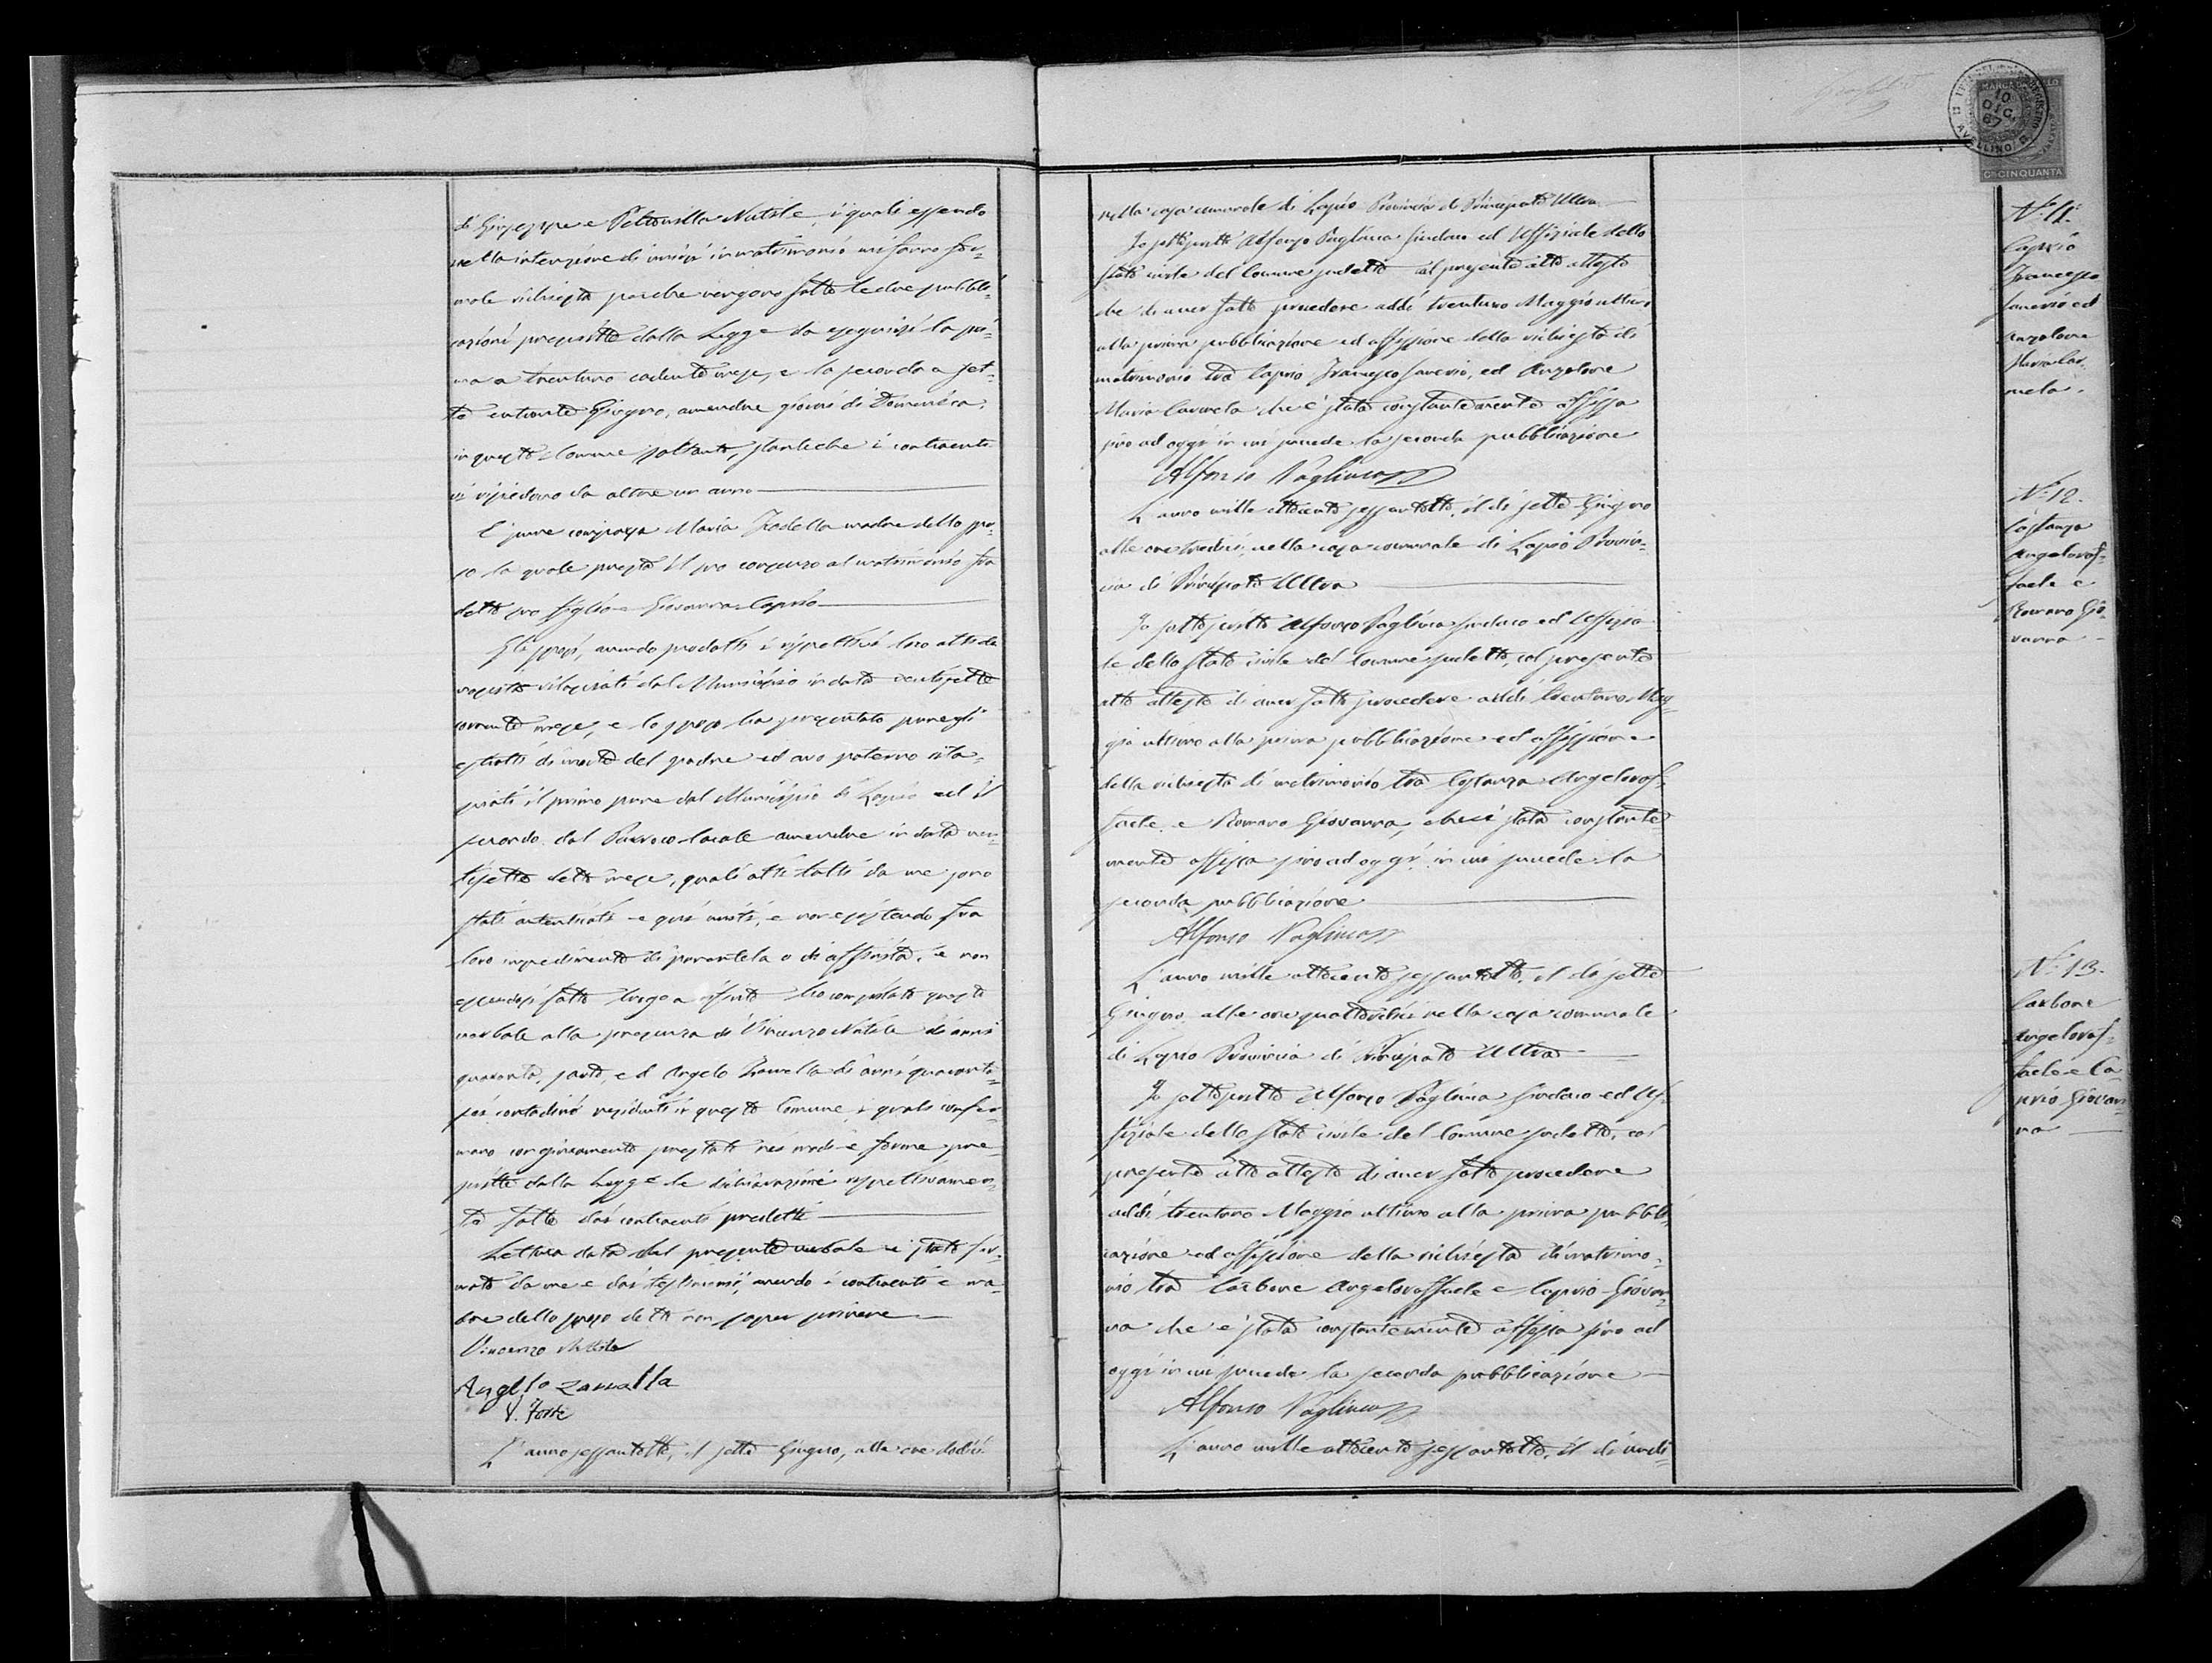 di Giuseppe e Petronilla Natale, i quali essendo
nella intenzione di unirsi in matrimonio mi fanno for-
male richiesta perché vengono fatte le due pubbli-
cazioni prescritte dalla Legge da eseguirsi la pri-
ma a trentuno cadente mese, e la seconda a set-
te entrante Giugno, amendue giorni di Domenica,
in questo Comune soltanto, stanteché i contraenti
vi risiedono da oltre un anno
E pure comparsa Maria madre dello spo-
so la quale presta il suo consenso al matrimonio fra
detto suo figlio e Giovanna Caprio
Gli sposi, avendo prodotti i rispettivi loro atti di
nascita rilasciati dal Municipio in data ventisette
corrente mese, e lo sposo ha presentato pure gli
estratti di morte del padre ed avo paterno rila-
sciati il primo pure dal Municipio di Lapio ed il
secondo dal Parroco locale amendue in data ven-
tisette detto mese, quali atti tutti da me sono
stati autenticati e qui uniti, e non esistendo fra
loro impedimento di parentela o di affinità, e non
essendosi fatto luogo a rifiuto ho compilato questo
verbale alla presenza di Vincenzo Natale di anni
quaranta, sarto, e di Angelo Zarrella di anni quaranta-
sei contadino residenti in questo Comune, i quali confer-
mano con giuramento prestato nei modi e forme pre-
scritte dalla Legge le dichiarazioni rispettivamen-
te fatte dai contraenti predetti
Lettura data del presente verbale è stato fir-
mato da me e dai testimonii, avendo i contraenti e ma-
dre dello sposo detto non saper scrivere
Vincenzo Natale
Angelo Zarrella
V. Forte
L'anno sessantotto, il sette Giugno, alle ore dodici
nella casa comunale di Lapio Provincia di Principato Ultra
Io sottoscritto Alfonso Pagliuca Sindaco ed Uffiziale dello
stato civile del Comune sudetto col presente atto attesto
che di aver fatto procedere addì trentuno Maggio ultimo
alla prima pubblicazione ed affissione della richiesta di
matrimonio tra Caprio Francesco Saverio, ed Anzalone
Maria Carmela che è stata constantemente affissa
sino ad oggi in cui procede la seconda pubblicazione
Alfonso Pagliuca
L'anno mille ottocento sessantotto, il dì sette Giugno
alle ore tredici, nella casa comunale di Lapio Provin-
cia di Principato Ultra
Io sottoscritto Alfonso Pagliuca Sindaco ed Uffizia-
le dello stato civile del Comune sudetto, col presente
atto attesto di aver fatto procedere addì trentuno Mag-
gio ultimo alla prima pubblicazione ed affissione
della richiesta di matrimonio tra Costanza Angeloraf-
faele e Romano Giovanna, che è stata constante-
mente affissa sino ad oggi in cui procede la
seconda pubblicazione
Alfonso Pagliuca
L'anno mille ottocento sessantotto, il dì sette
Giugno alle ore quattordici nella casa comunale
di Lapio Provincia di Principato Ultra
Io sottoscritto Alfonso Pagliuca Sindaco ed Uf-
fiziale dello stato civile del Comune sudetto, col
presente atto attesto di aver fatto procedere
addì trentuno Maggio ultimo alla prima pubbli-
cazione ed affissione della richiesta di matrimo-
nio tra Carbone Angeloraffaele e Caprio Giovan-
na che è stata constantemente affissa sino ad
oggi in cui procede la seconda pubblicazione
Alfonso Pagliuca
L'anno mille ottocento sessantotto, il dì undi-
10
DIC.
67
AVELLINO
C.mi CINQUANTA
N.° 11.
Caprio
Francesco
Saverio ed
Anzalone
Maria Car-
mela.
N.° 12.
Costanza
Angeloraf-
faele e
Romano Gio-
vanna
N.° 13.
Carbone
Angeloraf-
faele e Ca-
prio Giovan-
na